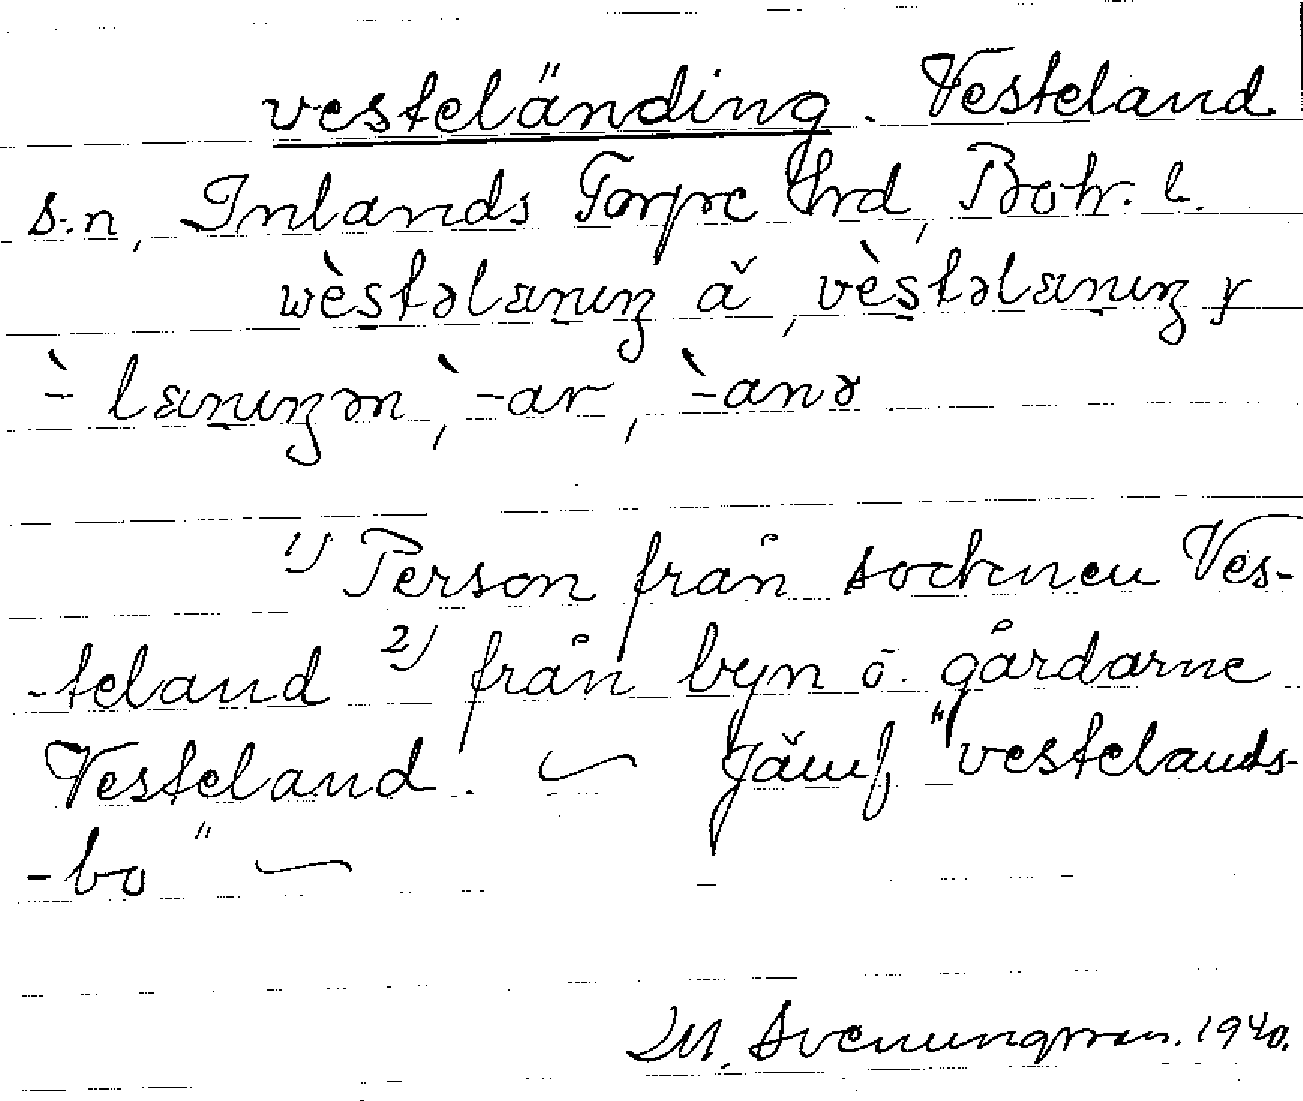 vesteländing. Vesteland
s:n, Inlands Torpe hrd, Boh. l.
wὲstəlænıŋ ă, vὲstəlænıŋ y
`- lænıŋən, `-ar, `-anə
1) Person från socknen Ves-
-teland 2) från byn o. gårdarne
Vesteland. ~ Jämf "vestelands-
-bo" ~
M. Svenungsson. 1940.